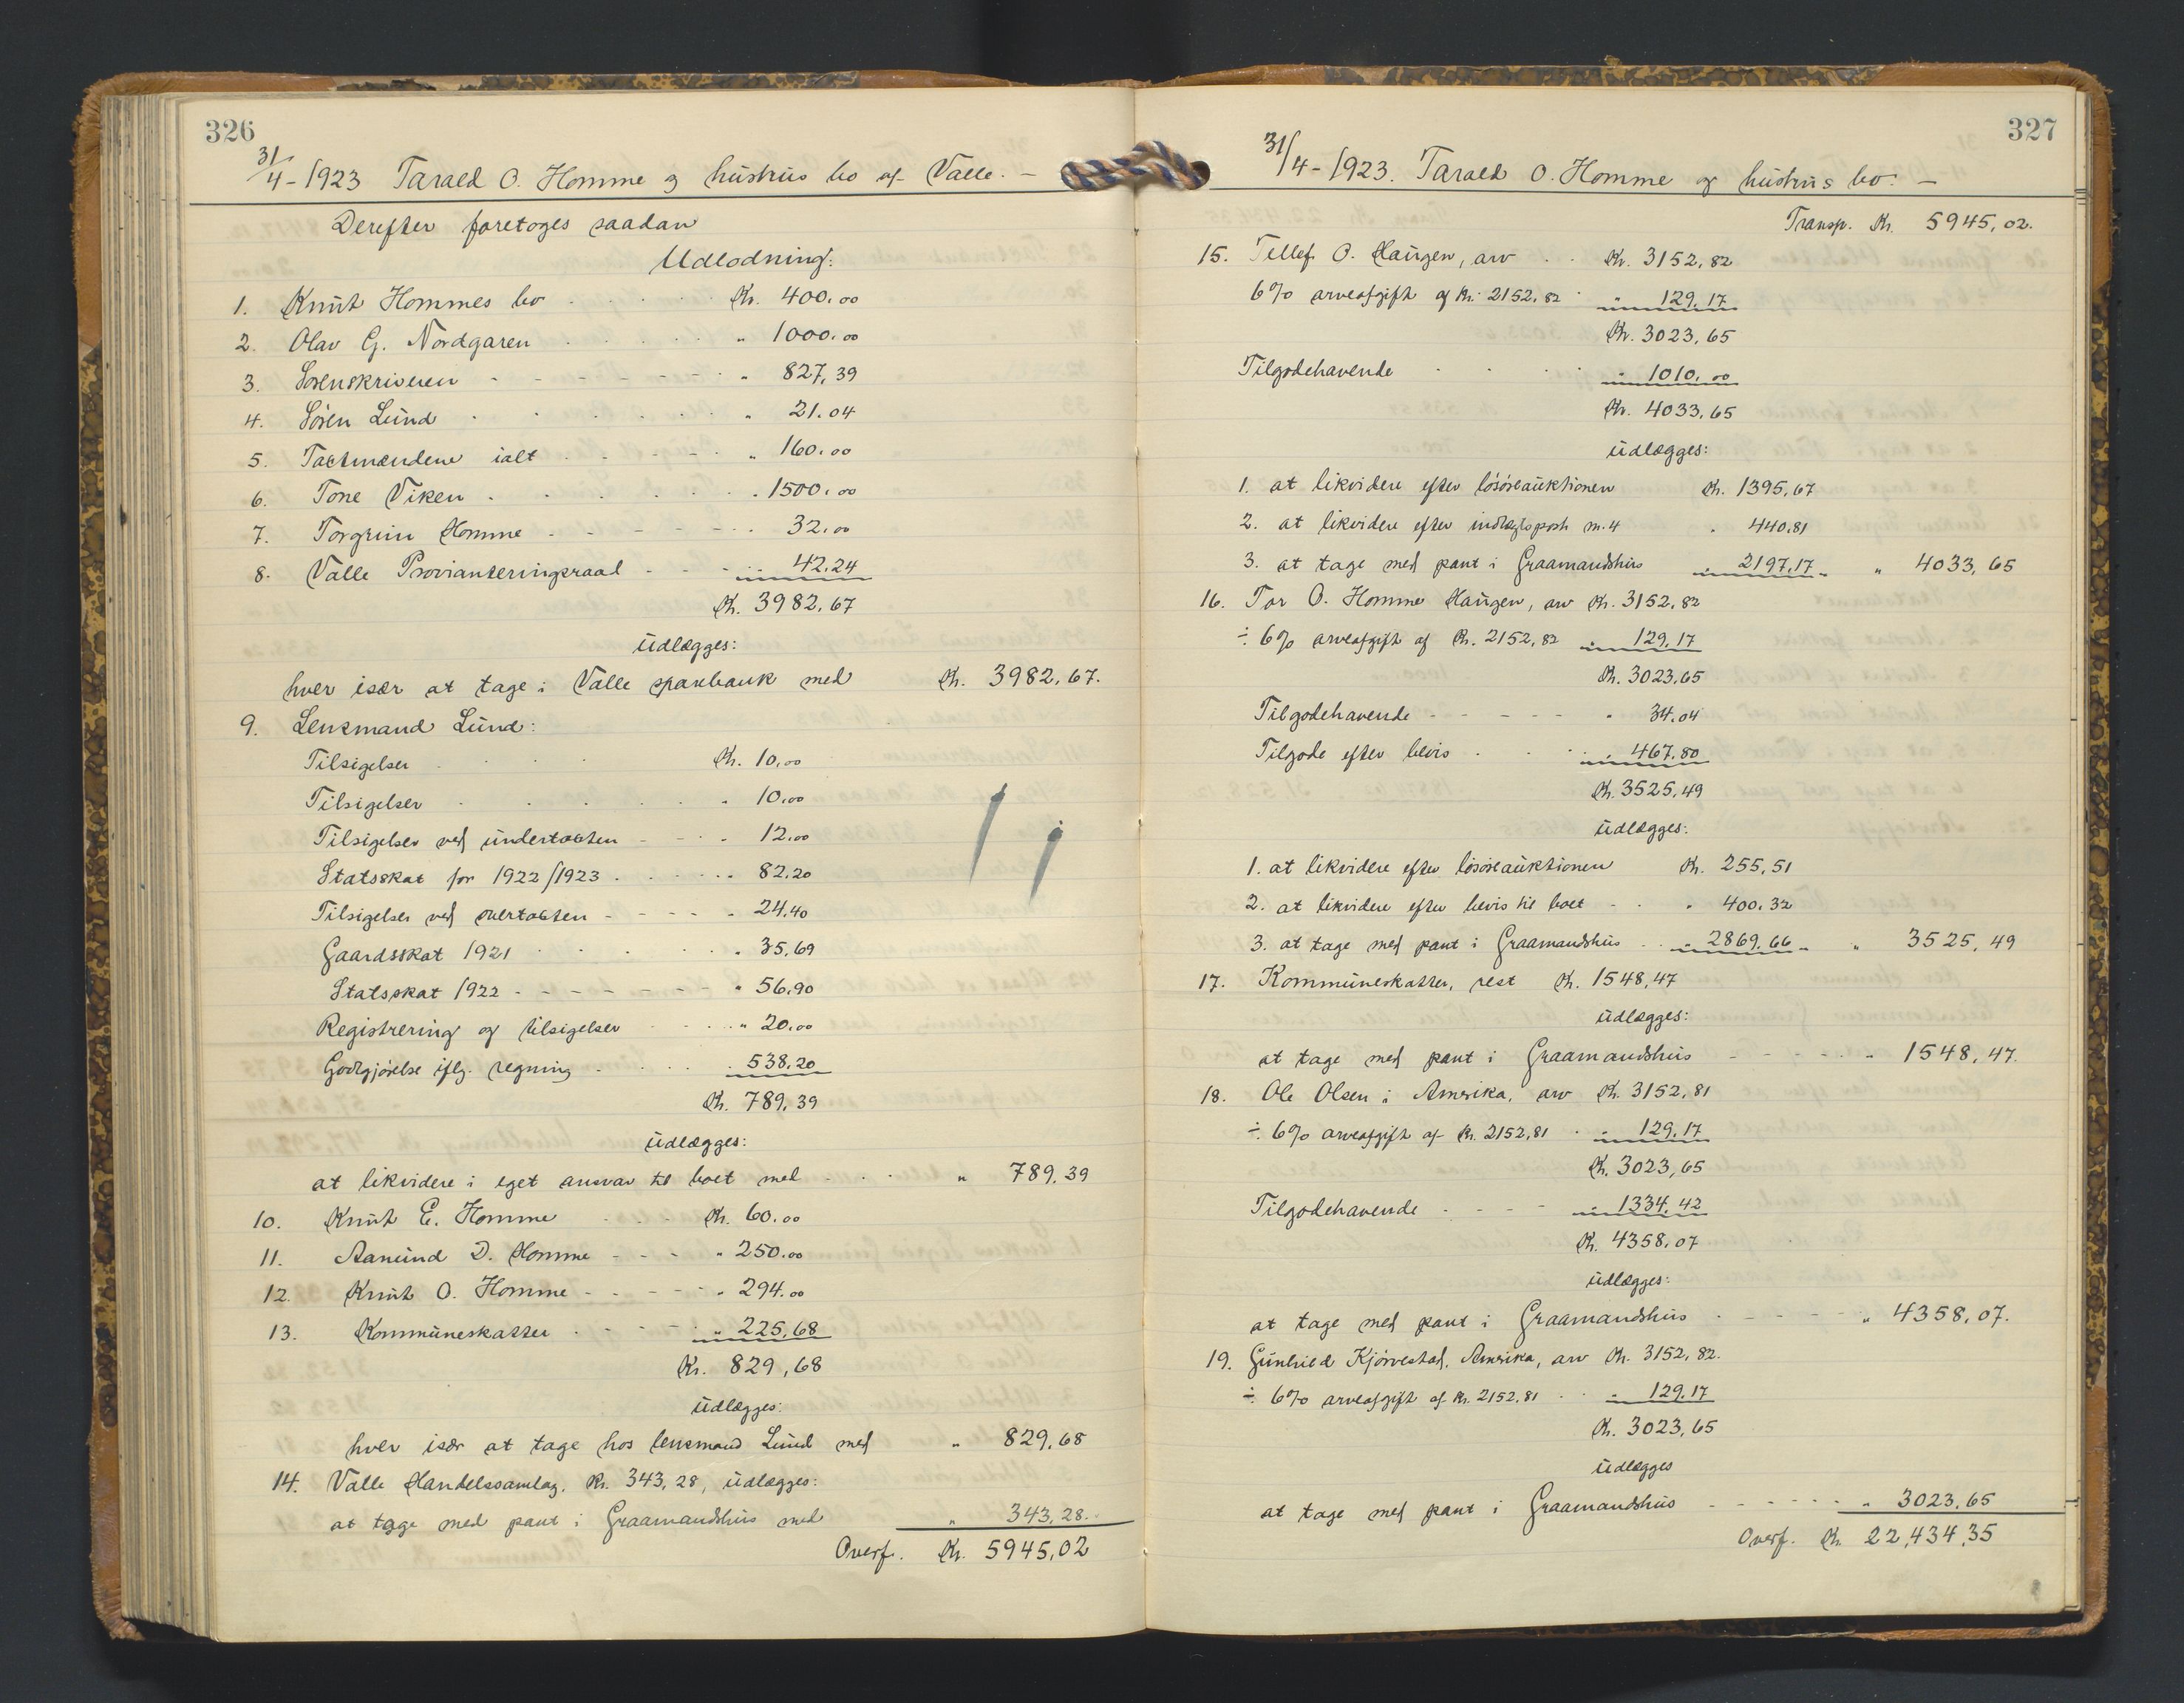 326
31/4-1923 Tarald O. Homme og hustrus bo af Valle. -
Derefter foretoges saadan
Udlodning:
1. Knut Hommes bo Kr. 400.00
2. Olav G. Nordgaren " 1000.00
3. Sorenskriveren " 827,39
4. Sören Lund " 21.04
5. Taxtmændene ialt " 160.00
6. Tone Viken " 1500.00
7. Torgrim Homme 32.00
8. Valle Provianteringsraad " 42.24
Kr. 3982.67
udlægges:
hver især at tage i Valle sparebank med Kr. 3982,67.
9. Lensmand Lund:
Tilsigelser Kr. 10,00
Tilsigelser " 10.00
Tilsigelser ved undertaxten " 12.00
Statsskat for 1922/1923 " 82.20
Tilsigelser ved overtaxten " 24.40
Gaardsskat 1921 " 35,69
Statsskat 1922 " 56.90
Registrering og tilsigelser " 20.00
Godtgjörelse iflg. regning 538.20
Kr. 789.39
udlægges:
at likvidere i eget ansvar til boet med " 789.39
10. Knut E. Homme Kr. 60.00
11. Aamund D. Homme " 250.00
12. Knut O. Homme " 294.00
13. Kommuneskatter " 225,68
Kr. 829,68
udlægges:
hver især at tage hos lensmand Lund med " 829.68
14. Valle Handelssamlag, Kr. 343,28, udlægges:
at tage med pant i Graamandshus med " 343,28.
Overf. Kr. 5945,02
327
31/4-1923. Tarald O. Homme og hustrus bo. -
Transp. Kr. 5945,02.
15. Tellef O. Haugen, arv Kr. 3152,82
6% arveafgift af Kr. 2152,82 " 129.17
Kr. 3023,65
Tilgodehavende " 1010.00
Kr. 4033,65
udlægges:
1. at likvidere efter lösöreauktionen Kr. 1395,67
2. at likvidere efter indtægtspost m. 4 " 440.81
3. at tage med pant i Graamandshus " 2197.17 " 4033,65
16. Tor O. Homme Haugen, arv Kr. 3152,82
÷ 6% arveafgift af Kr. 2152,82 " 129,17
Kr. 3023,65
Tilgodehavende " 34.04
Tilgode efter bevis " 467.80
Kr. 3525,49
udlægges:
1. at likvidere efter lösöreauktionen Kr. 255,51
2. at likvidere efter bevis til boet " 400.32
3. at tage med pant i Graamandshus " 2869.66 " 3525,49
17. Kommuneskatter, rest Kr. 1548,47
udlægges:
at tage med pant i Graamandshus " 1548,47.
18. Ole Olsen i Amerika, arv Kr. 3152,81
÷ 6% arveafgift af Kr. 2152,81 " 129,17
Kr. 3023,65
Tilgodehavende " 1334,42
Kr. 4358,07
udlægges:
at tage med pant i Graamandshus " 4358,07.
19. Gunhild Kjörvestad, Amerika, arv Kr. 3152,82.
÷ 6% arveafgift af Kr. 2152,81 " 129.17
Kr. 3023,65
udlægges
at tage med pant i Graamandshus " 3023,65
Overf. Kr. 22,434,35